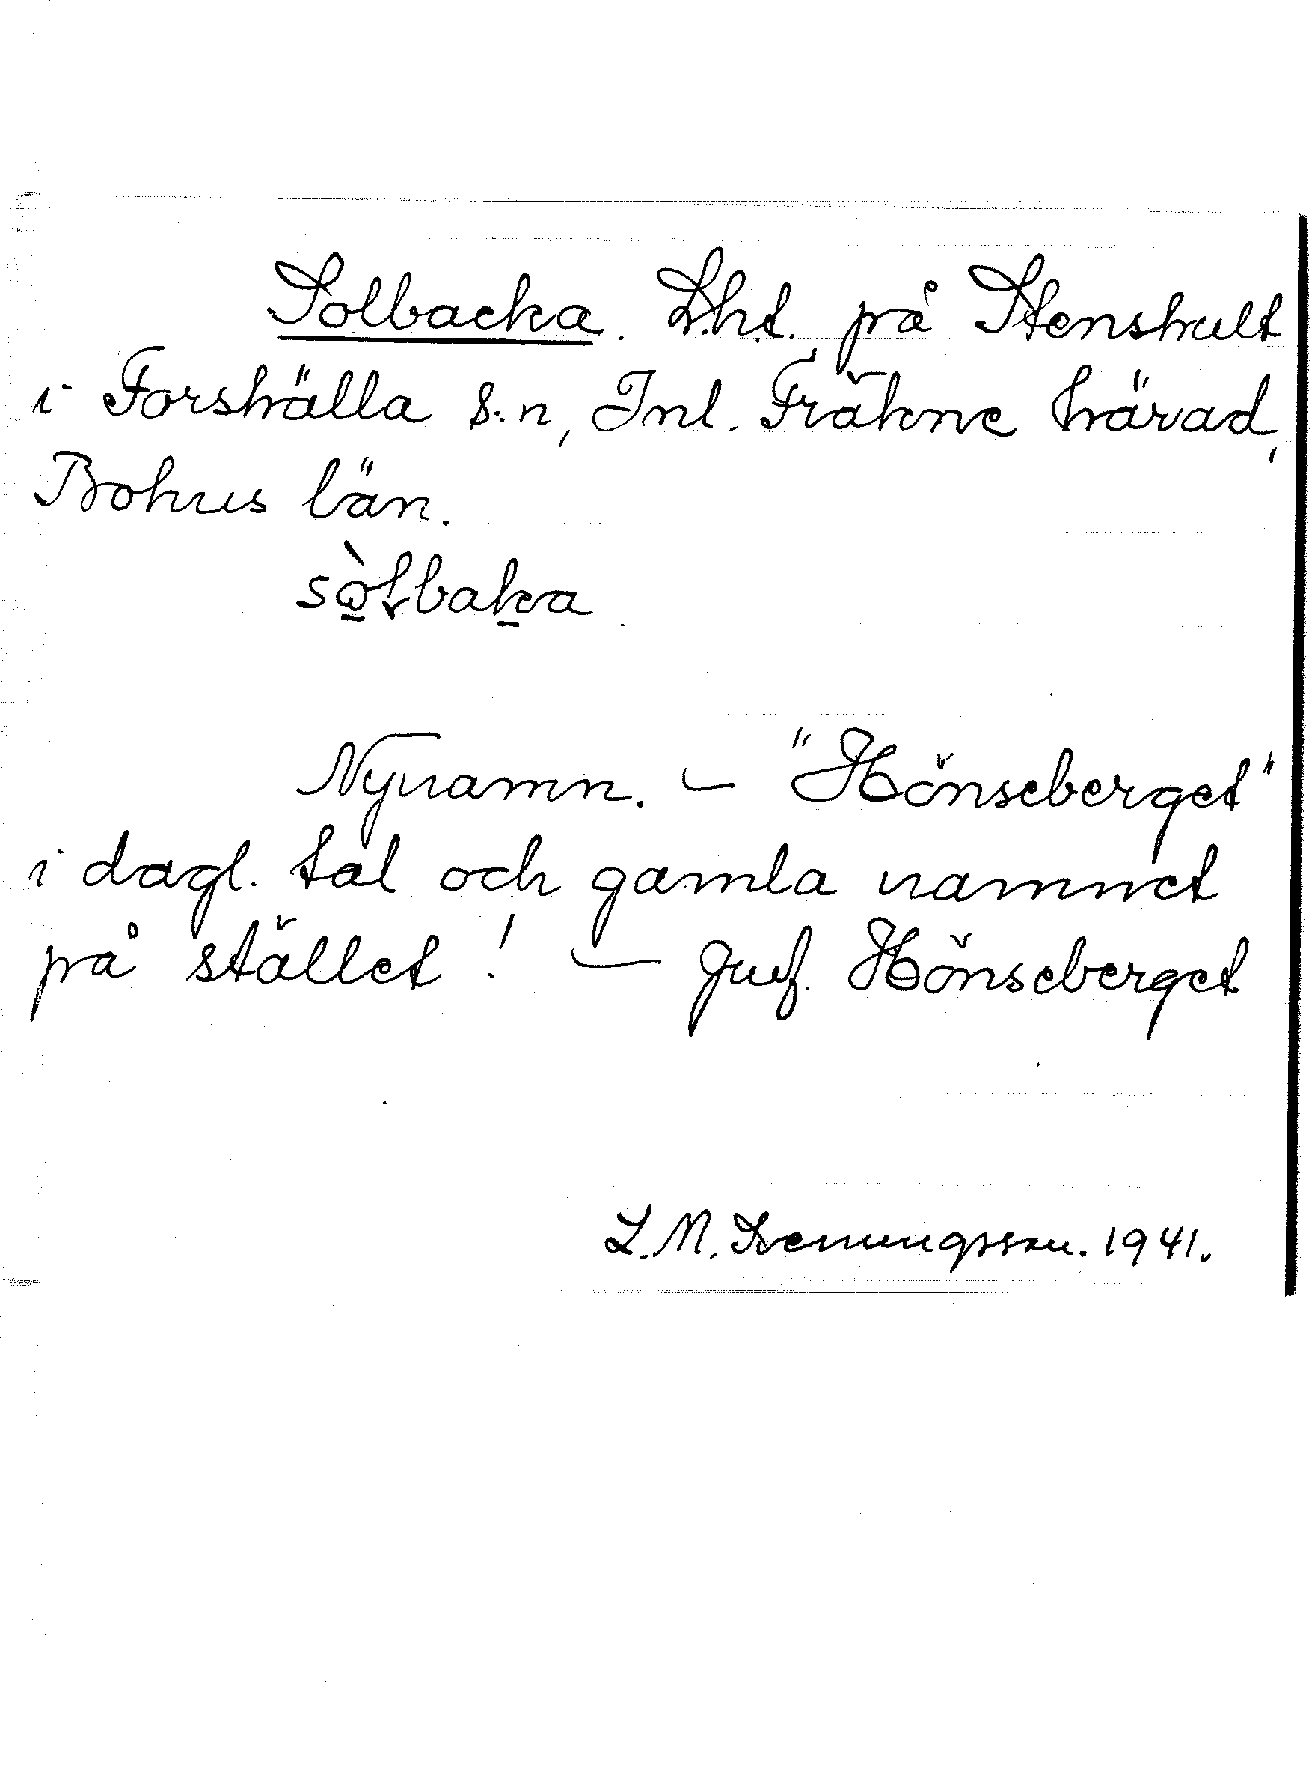 Solbacka. L.h.t. på Stenshult
i Forshälla s:n, Inl. Fräkne härad,
Bohus län.
sòlbaka
Nynamn. – "Hönseberget"
i dagl. tal och gamla namnet
på stället! – Jmf. Hönseberget
L. M. 1941.